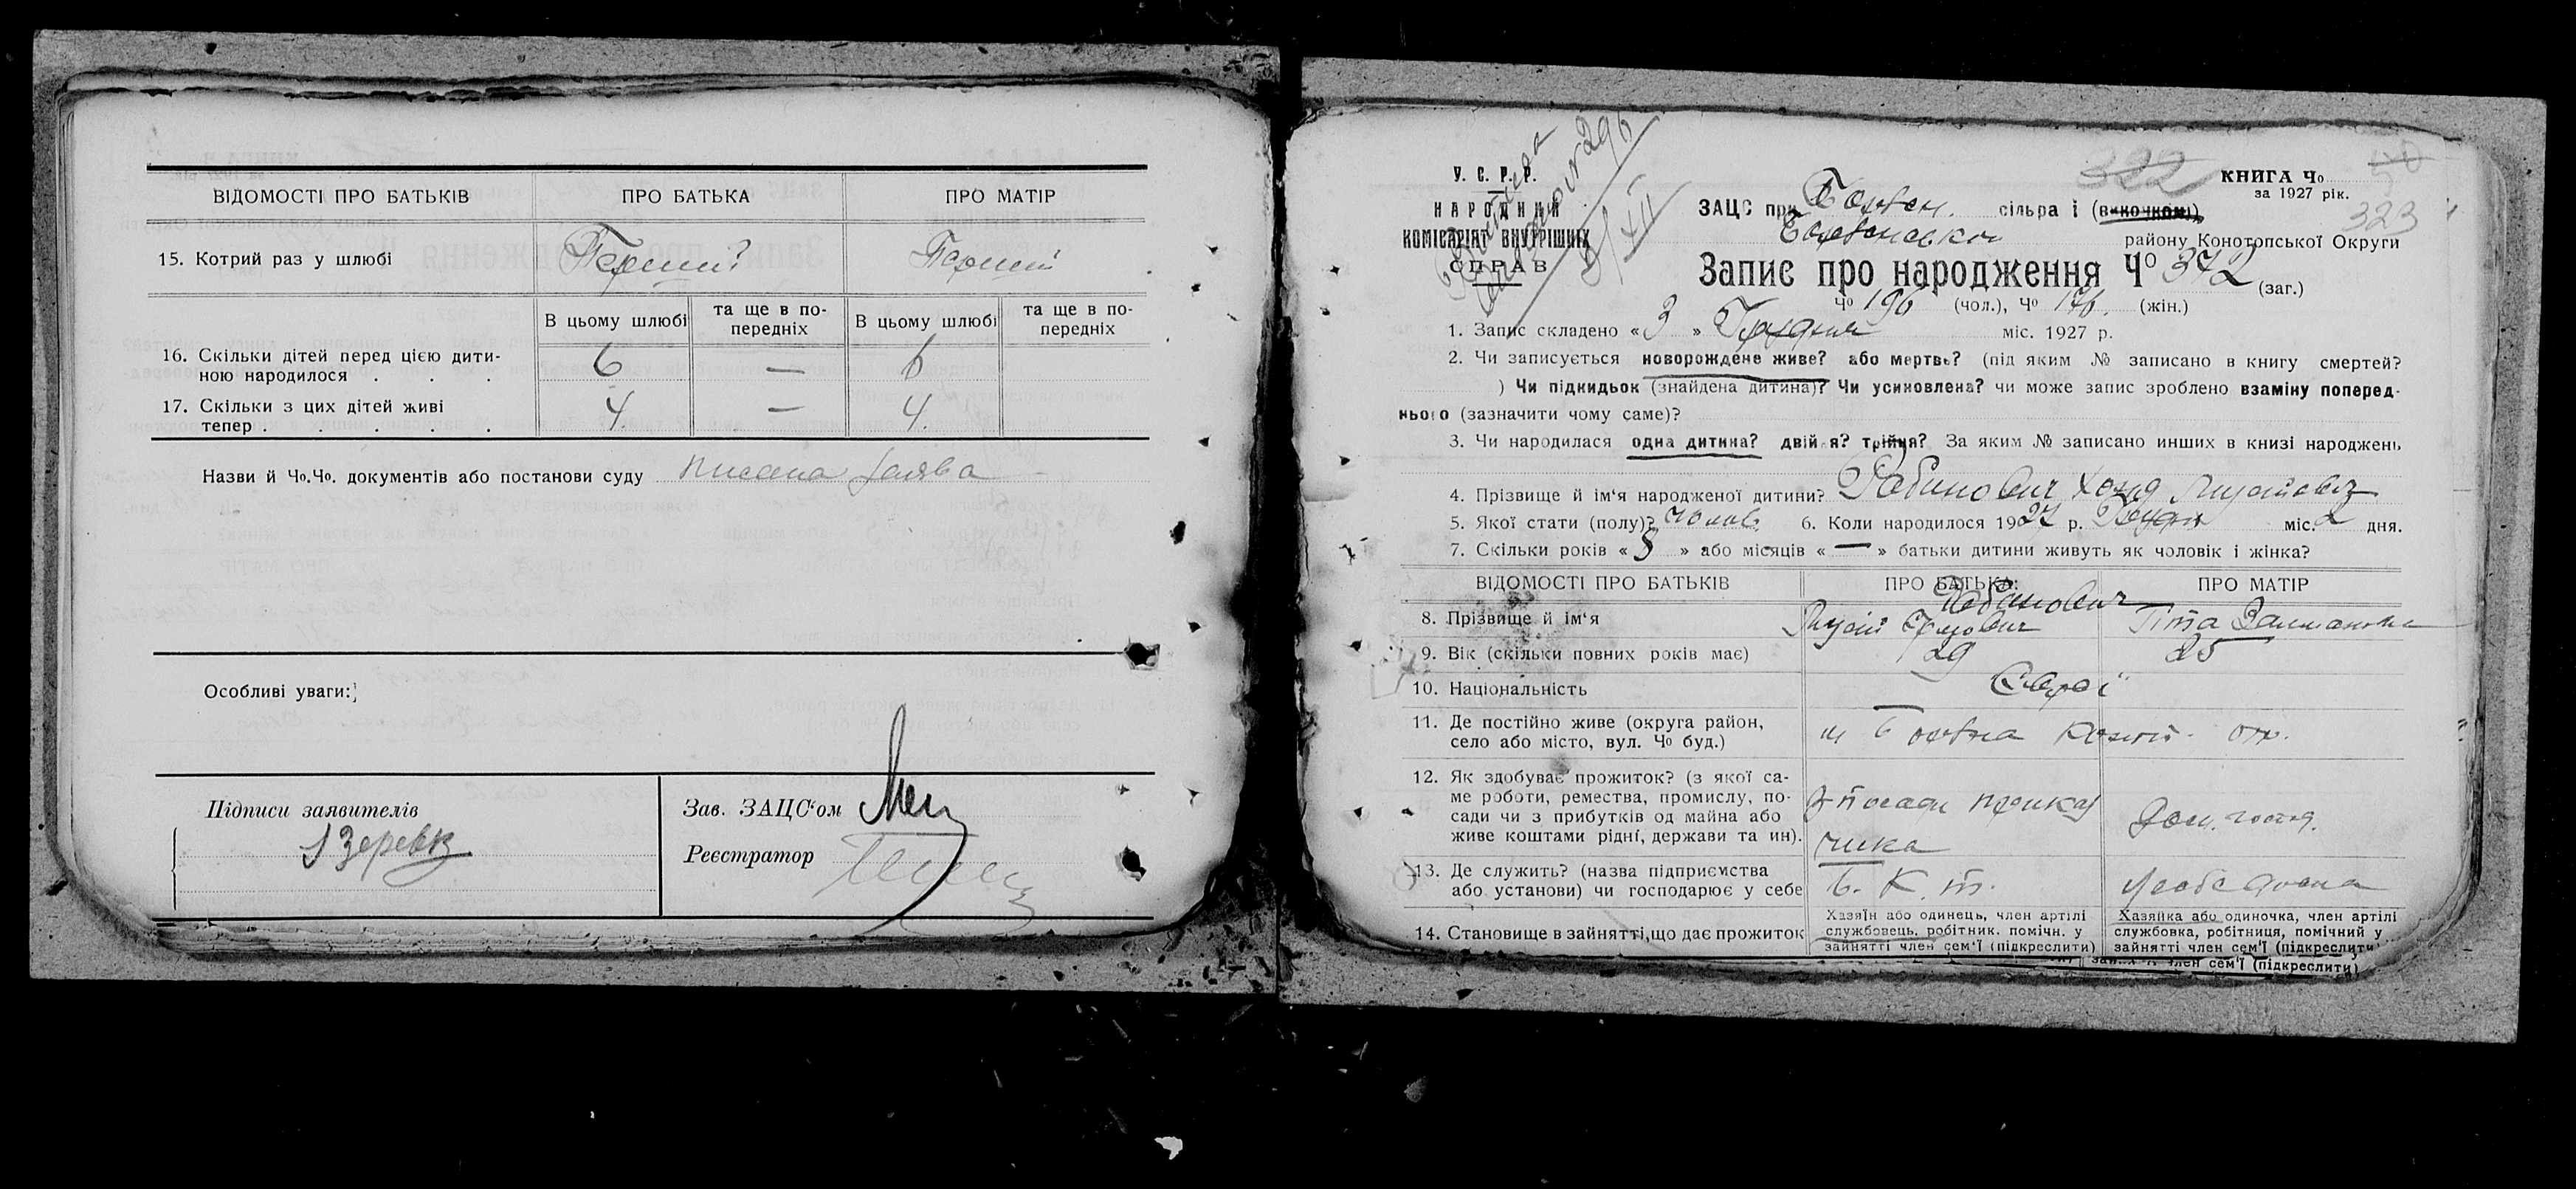 ВІДОМОСТІ ПРО БАТЬКІВ ПРО БАТЬКА ПРО МАТІР
15. Котрий раз у шлюбі Перший Перший
В цьому шлюбі та ще в по- В цьому шлюбі та ще в по-
передніх передніх
16. Скільки дітей перед цією дити-
ною народилося . . . 6 — 6
17. Скільки з цих дітей живі
тепер . . . . . 4. — 4.
Назви й Чо.Чо. документів або постанови суду писана заява
Особливі уваги:
Підписи заявителів
Зав. ЗАЦС'ом
Реєстратор
У. С. Р. Р.
НАРОДНИЙ
КОМІСАРІАТ ВНУТРІШНІХ
СПРАВ
322 КНИГА Чо
за 1927 рік.
323
ЗАЦС при сільраді (виконкомі)
району Конотопської Округи
Запис про народження Чо 372 (заг.)
Чо 196 (чол.), Чо 176. (жін.)
1. Запис складено « 3 » Грудня міс. 1927 р.
2. Чи записується новорождене живе? або мертве? (під яким № записано в книгу смертей?
) Чи підкидьок (знайдена дитина)? Чи усиновлена? чи може запис зроблено взаміну поперед-
нього (зазначити чому саме)?
3. Чи народилася одна дитина? двійня? трійня? За яким № записано инших в книзі народжень
4. Прізвище й ім'я народженої дитини? Рабинович
5. Якої стати (полу)? чолов. 6. Коли народилося 1927 р. Грудня міс. 2 дня.
7. Скільки років « 3 » або місяців « — » батьки дитини живуть як чоловік і жінка?
ВІДОМОСТІ ПРО БАТЬКІВ ПРО БАТЬКА: ПРО МАТІР
Рабинович
8. Прізвище й ім'я
9. Вік (скільки повних років має) 29 25
10. Національність Євреї
11. Де постійно живе (округа район,
село або місто, вул. Чо буд.) Конот. окр.
12. Як здобуває прожиток? (з якої са-
ме роботи, ремества, промислу, по-
сади чи з прибутків од майна або
живе коштами рідні, держави та ин).
з посади приказ
чика
дом. госпд.
13. Де служить? (назва підприємства
або установи) чи господарює у себе
Б. К. т. у себе дома
14. Становище в зайнятті, що дає прожиток
Хазяїн або одинець, член артілі
службовець, робітник, помічн. у
зайнятті член сем'ї (підкреслити)
Хазяйка або одиночка, член артілі
службовка, робітниця, помічний у
зайнятті член сем'ї (підкреслити)
член сем'ї (підкреслити)